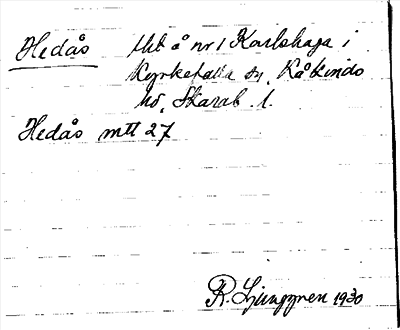 Hedås Utt å nr 1 Karlshaga i
Kyrkefalla sn, Kåkinds
hd, Skarab. l.
Hedås mtt 27
R. Ljunggren 1930